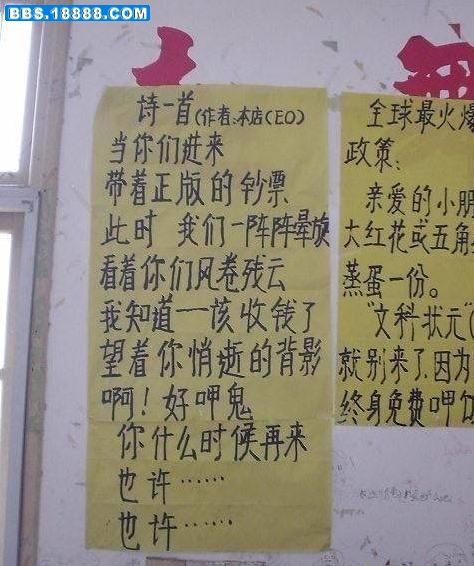 BBS.18888.COM
诗一首(作者:本店CEO)
当你们进来
带着正版的钞票
此时 我们一阵阵晕旋
看着你们风卷残云
我知道一该收钱了
望着你悄逝的背影
啊!好呷鬼
你什么时候再来
也许……
也许……
全球最火爆
政策:
亲爱的小朋
大红花或五角
蒸蛋一份。
"文科状元"(
就别来了,因为
终身免费呷饭